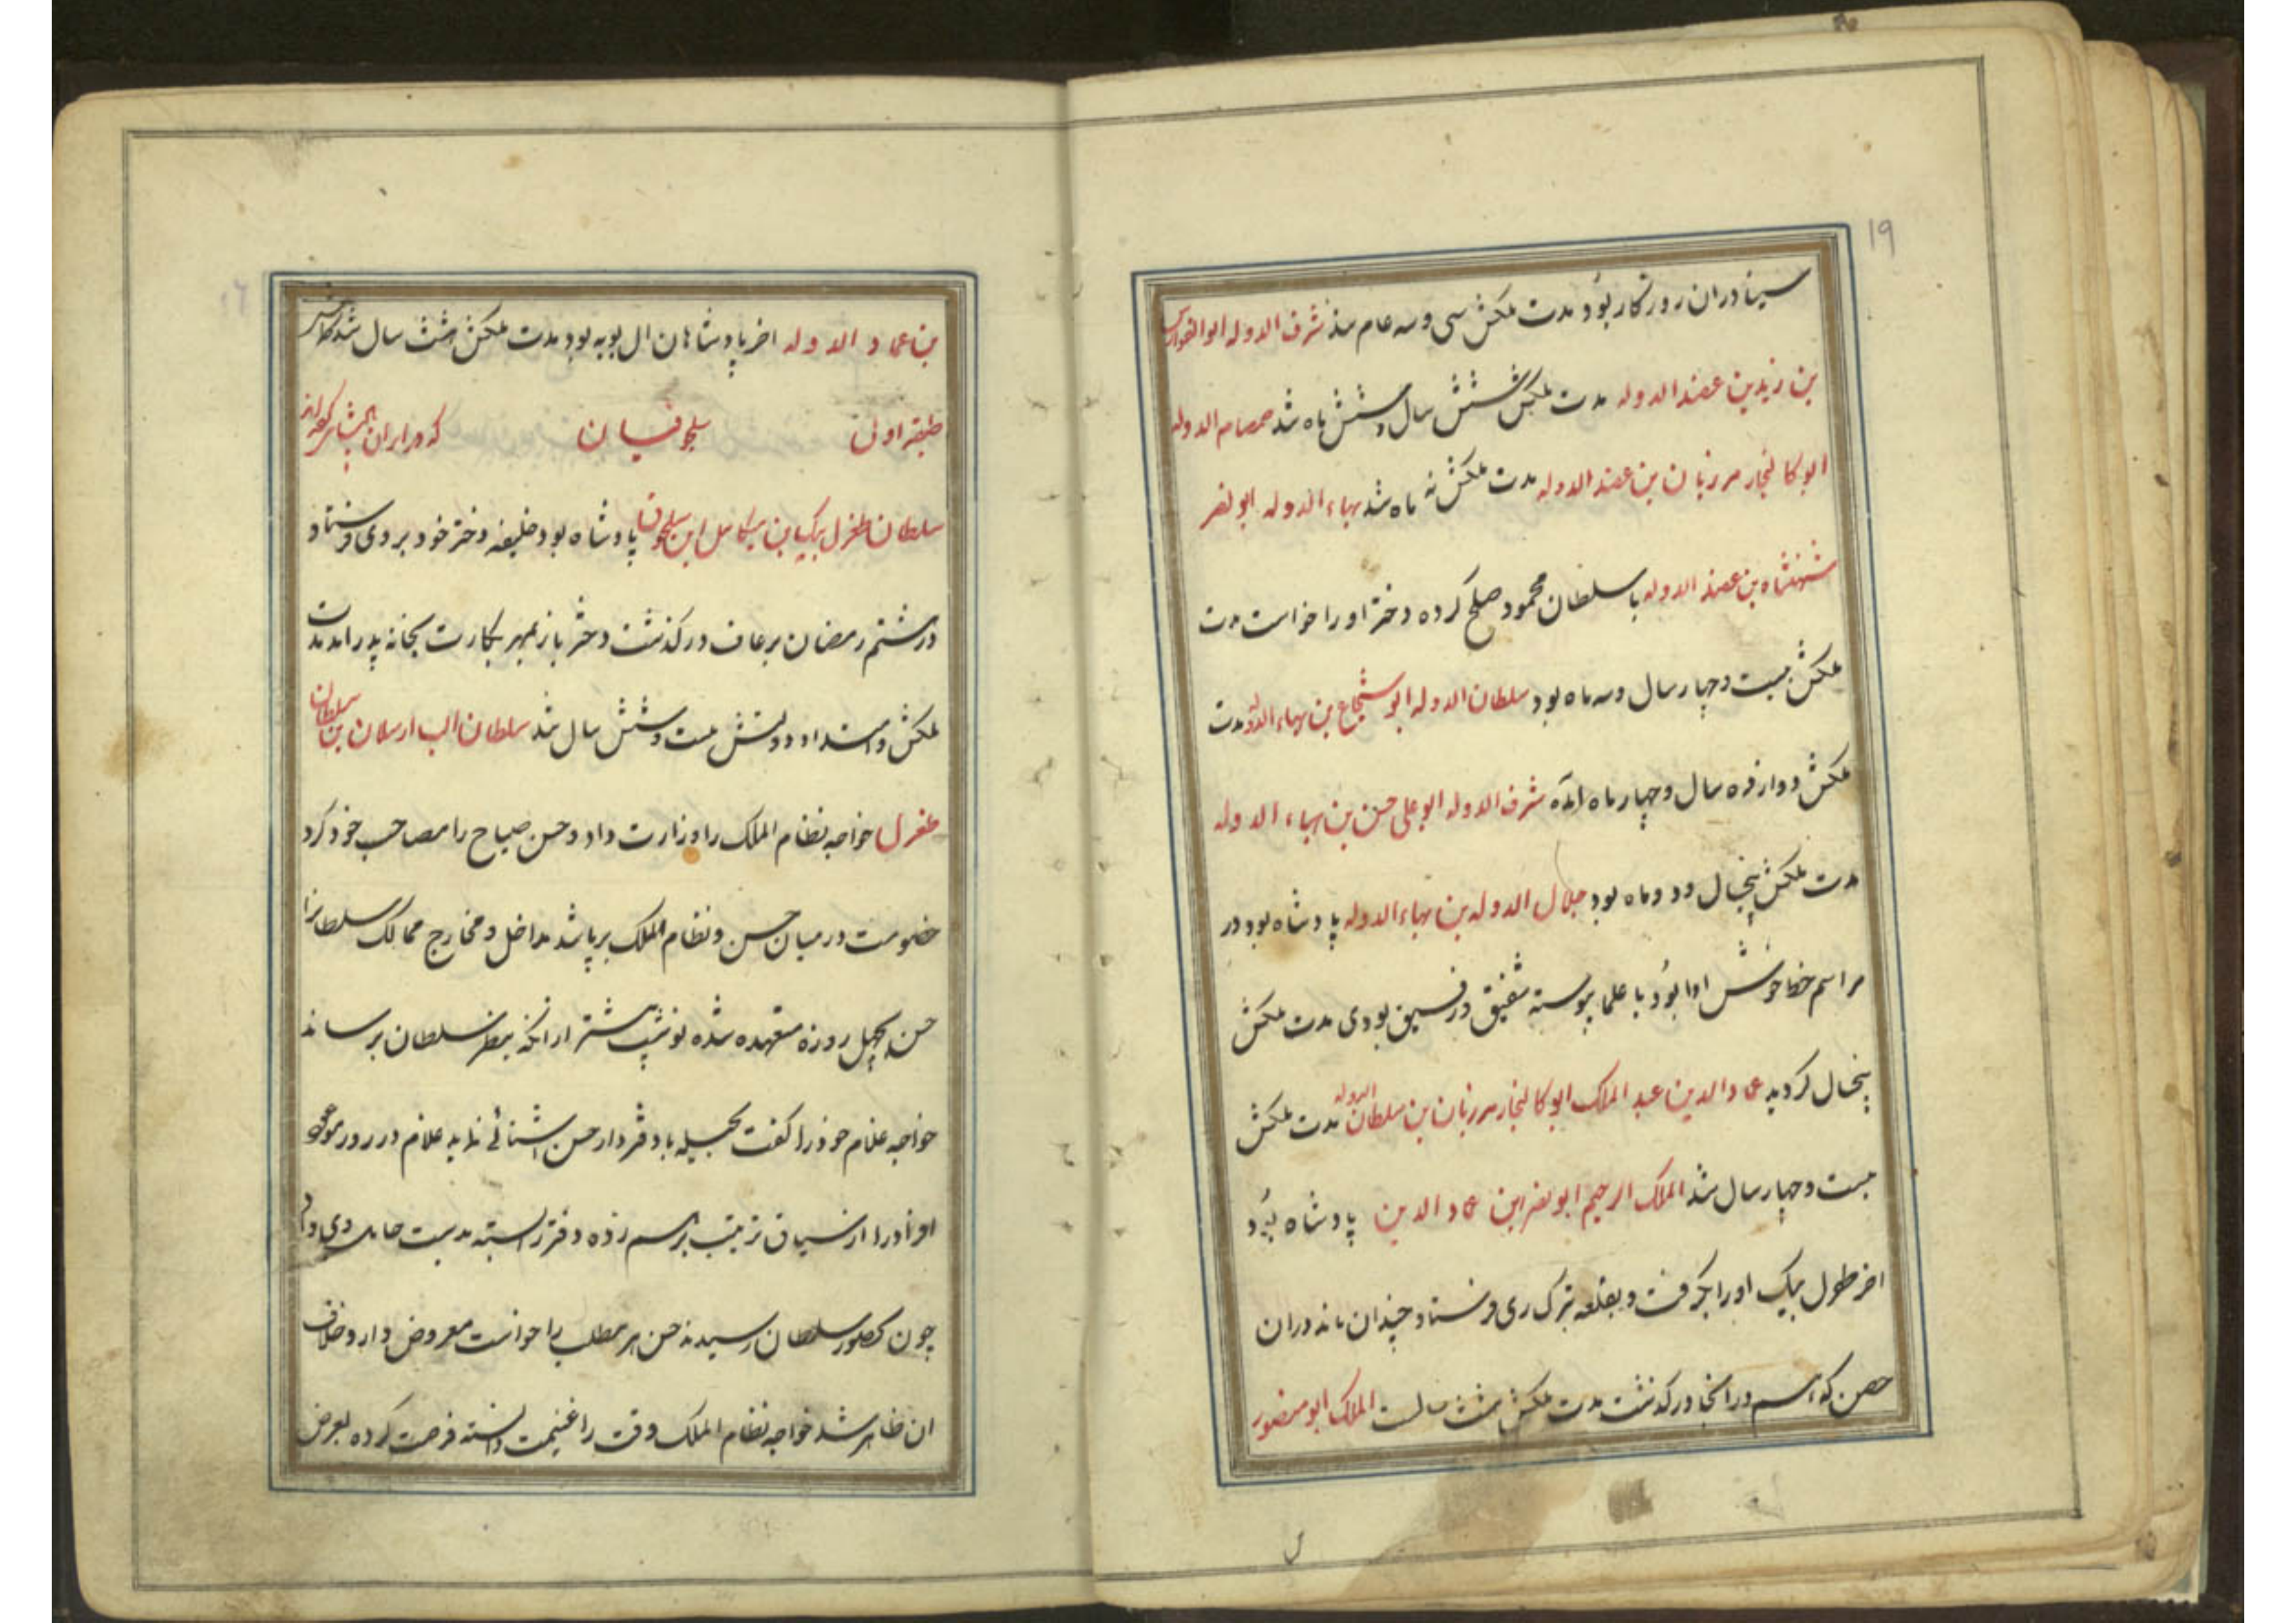 ۱۹
سینا دران روزگار بود مدت ملکش سی و سه عام شد شرف الدوله ابوالفوارس
بن زیدبن عضد الدوله مدت ملکش شش سال و شش ماه شد صمصام الدوله
ابوکالنجار مرزبان بن عضد الدوله مدت ملکش نه ماه شد بهاء الدوله ابو نصر
شهنشاه بن عضد الدوله با سلطان محمود صلح کرده دختر او را خواست مدت
ملکش بیست و چهار سال و سه ماه بود سلطان الدوله ابو شجاع بن بهاء الدوله مدت
ملکش دوازده سال و چهار ماه آمده شرف الدوله ابو علی حسن بن بهاء الدوله
مدت ملکش پنجسال و دو ماه بود جلال الدوله بن بهاء الدوله پادشاه بود در
مراسم خطا خوش ادا بود با علما پیوسته شفیق و رفیق بودی مدت ملکش
پنجسال کردید عماد الدین عبد الملک ابوکالنجار مرزبان بن سلطان الدوله مدت ملکش
بیست و چهار سال شد الملک الرحیم ابو نصر ابن عماد الدین پادشاه بود
اخر طغرل بیک او را بگرفت و بقلعه تبرک ری فرستاد چندان ماند دران
حصن که هم در انجا درگذشت مدت ملکش هشت سالست الملک ابو منصور
بن عماد الدوله اخر پادشاهان ال بویه بود مدت ملکش هشت سال شد
طبقه اولی سلجوقیان که در ایران
سلطان طغرل بیک بن میکائیل ابن سلجوق پادشاه بود خلیفه دختر خود بر وی فرستاد
در هشتم رمضان برعاف درگذشت دختر باز بمهر بکارت بخانه پدر امد مدت
ملکش و امتداد دولتش بیست و شش سال شد سلطان الب ارسلان بن سلطان
طغرل خواجه نظام الملک را وزارت داد و حسن صباح را مصاحب خود کرد
خصومت در میان حسن و نظام الملک برپا شد مداخل و مخارج ممالک سلطانرا
حسن بچهل روزه متعهده شده نوشت پیشتر ازانکه بنظر سلطان برساند
خواجه غلام خود را کفت بحیله با دفتردار حسن اشنائی نماید غلام در روز موعود
اوراق را از سیاق ترتیب برهم زده دفتر را بسته بدست حامل وی داد
چون بحضور سلطان رسیدند حسن هر مطلب را خواست معروض دارد خلاف
ان ظاهر شد خواجه نظام الملک وقت را غنیمت دانسته فرصت کرده بعرض